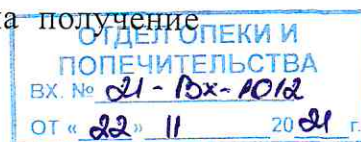 а получение
ОТДЕЛ ОПЕКИ И
ПОПЕЧИТЕЛЬСТВА
ВХ. № 21-Вх-1012
ОТ «22» 11 2021 г.